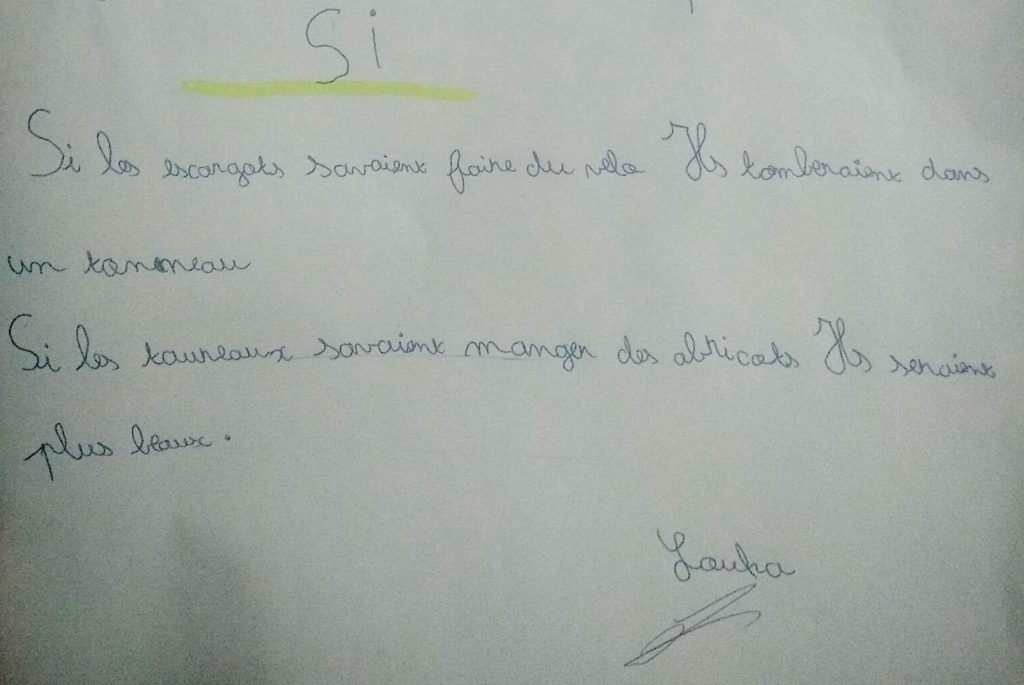 Si
Si les escargots savaient faire du vélo Ils tomberaient dans
un tonneau
Si les taureaux savaient manger des abricots Ils seraient
plus beaux.
Louka